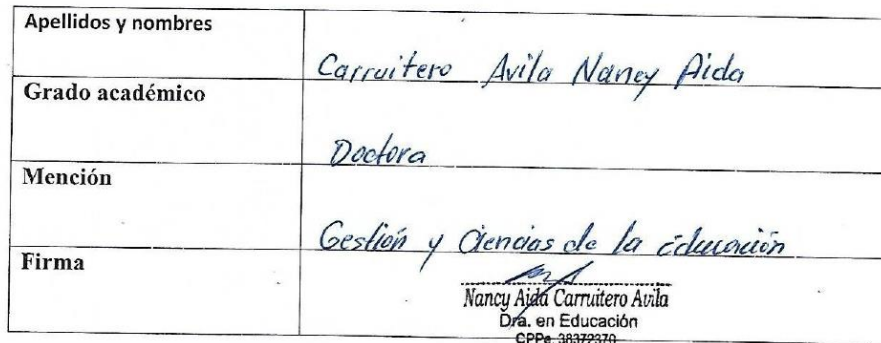 Apellidos y nombres
Carruitero Avila Nancy Aida
Grado académico
Doctora
Mención
Gestión y Ciencias de la Educación
Firma
Nancy Aida Carruitero Avila
Dra. en Educación
CPPe. 38372370